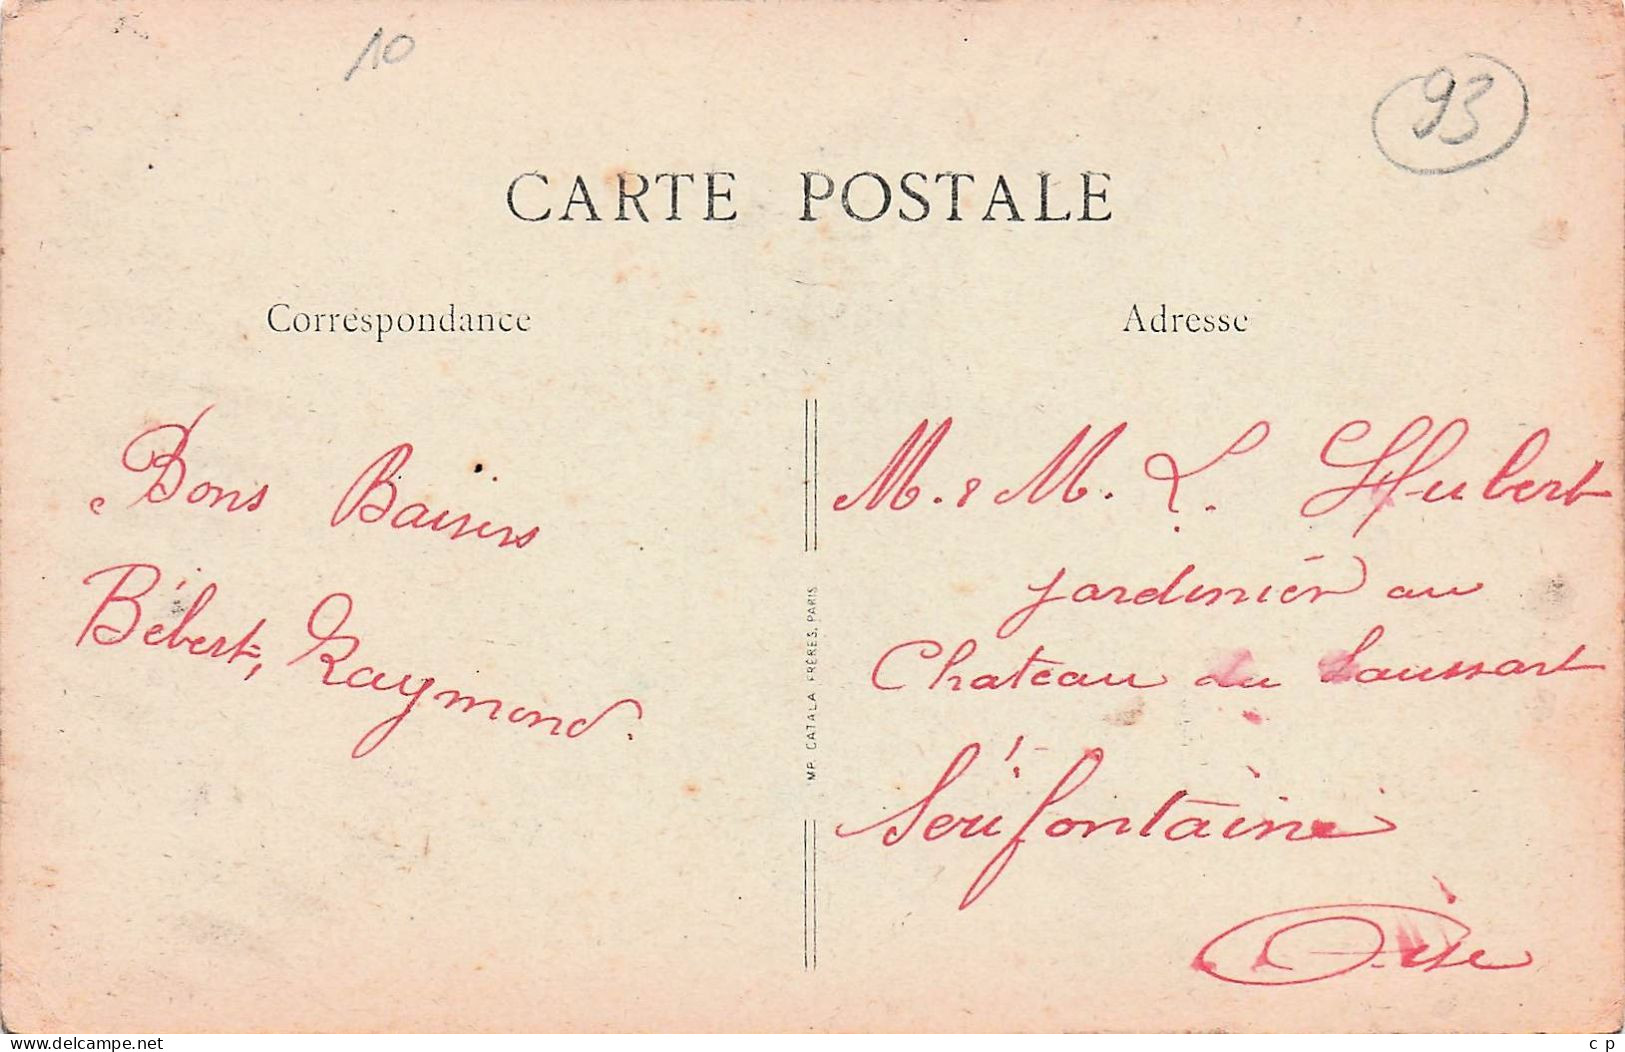 10
93
CARTE POSTALE
Correspondance
Adresse
Bons Baisers
Bébert, Raymond.
MP. CATALA FRÈRES, PARIS
M. & M. L. Hubert
jardinier au
Chateau du Saussart
Serifontaine
Oise
www.delcampe.net
c p